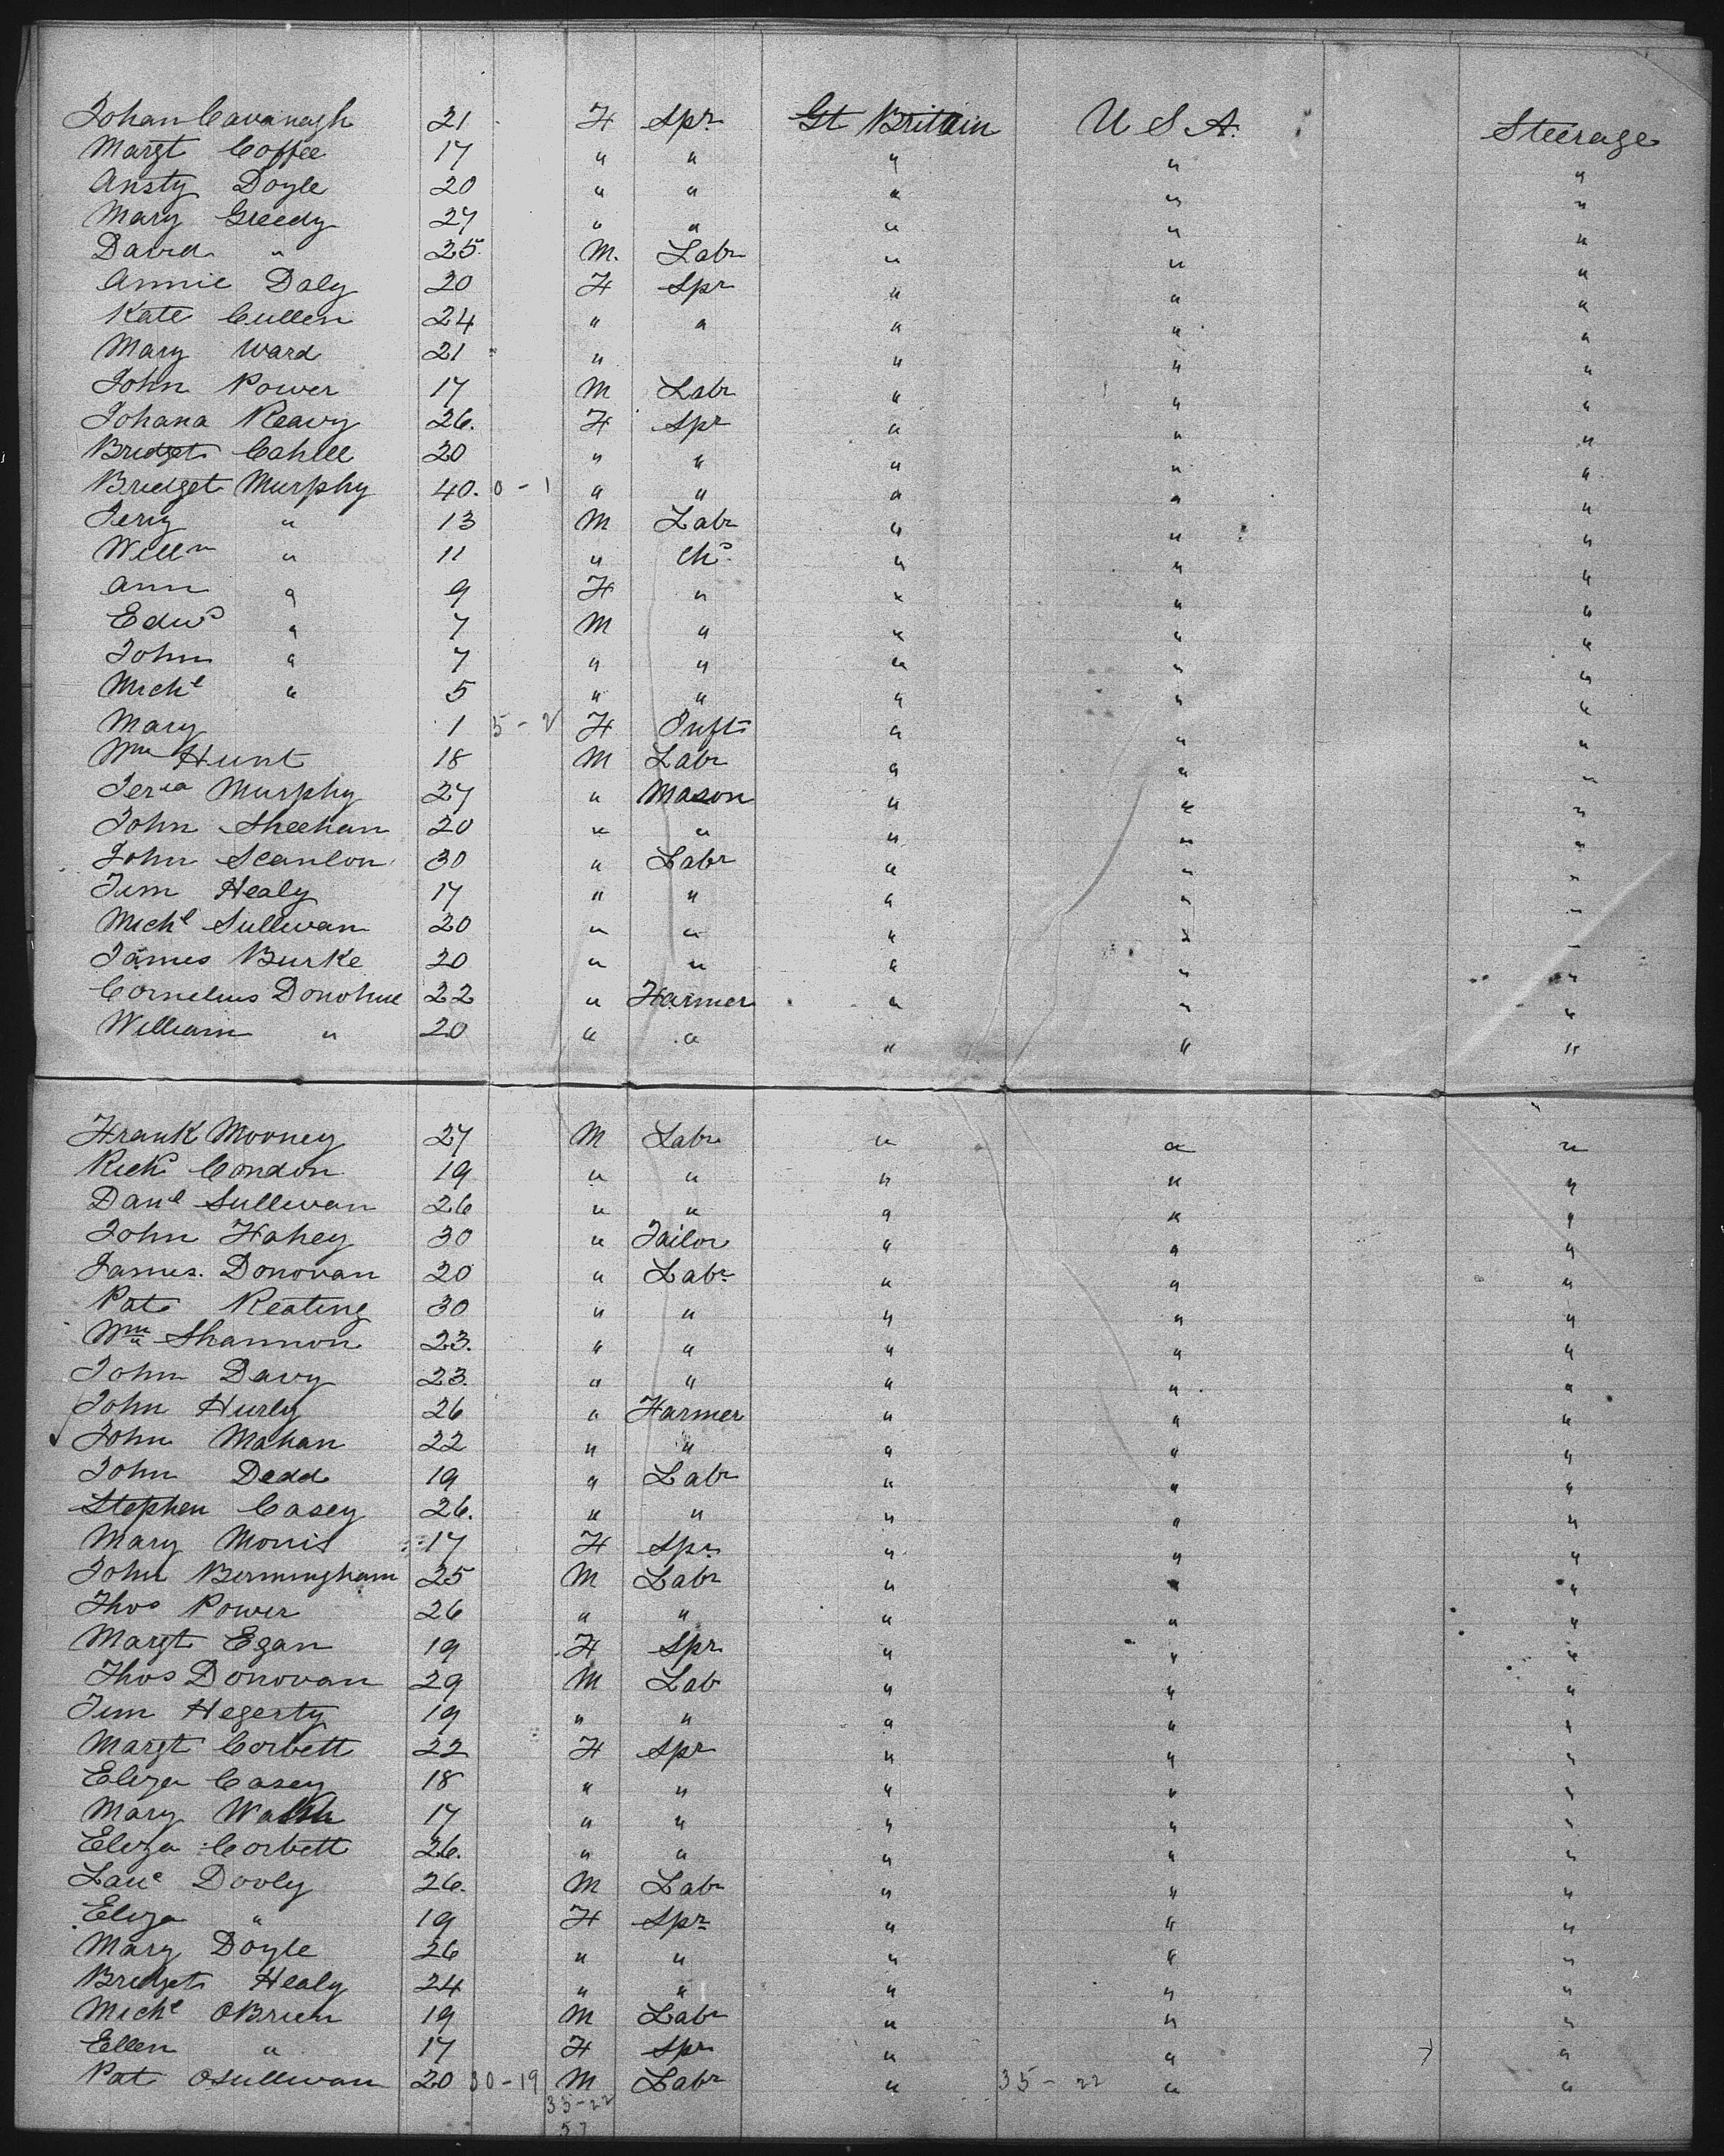 Johan Cavanagh 21 F Spr Gt Britain U S A. Steerage
Margt Coffee 17 " " " " "
Ansty Doyle 20 " " " " "
Mary Greedy 27 " " " " "
David " 25 M. Labr " " "
Annie Daly 20 F Spr " " "
Kate Cullen 24 " " " " "
Mary Ward 21 " " " "
John Power 17 M Labr " " "
Johana Reavy 26. F Spr " " "
Bridget Cahill 20 " " " " "
Bridget Murphy 40. 0-1 " " " " "
Jery " 13 M Labr " " "
Willm " 11 " Chd " " "
Ann " 9 F " " " "
Edwd " 7 M " " " "
John " 7 " " " " "
Michl " 5 " " " " "
Mary 1 5-2 F Inft " " "
Wm Hunt 18 M Labr " " "
Jeria Murphy 27 " Mason " " "
John Sheehan 20 " " " " "
John Scanlon 30 " Labr " " "
Tim Healy 17 " " " " "
Michl Sullivan 20 " " " " "
James Burke 20 " " " " "
Cornelius Donohue 22 " Farmer " " "
William " 20 " " " " "
Frank Mooney 27 M Labr " " "
Richd Condon 19 " " " " "
Danl Sullivan 26 " " " " "
John Fahey 30 " Tailor " " "
James. Donovan 20 " Labr " " "
Pat Keating 30 " " " " "
Wm Shannon 23. " " " " "
John Davy 23. " " " " "
John Hurly 26 " Farmer " " "
John Mahan 22 " " " " "
John Dedd 19 " Labr " " "
Stephen Casey 26. " " " " "
Mary Morris 17 F Spr " " "
John Bermingham 25 M Labr " " "
Thos Power 26 " " " " "
Margt Egan 19 F Spr " " "
Thos Donovan 29 M Lab " " "
Tim Hegerty 19 " " " " "
Margt Corbett 22 F Spr " " "
Eliza Casey 18 " " " " "
Mary Walsh 17 " " " " "
Eliza Corbett 26. " " " " "
Lauc Dooly 26. M Labr " " "
Eliza " 19 F Spr " " "
Mary Doyle 26 " " " " "
Bridget Healy 24 " " " " "
Michl OBrien 19 M Labr " " "
Ellen " 17 F Spr " " "
Pat OSullivan 20 30-19 M Labr " 35-22 " "
35-22
57